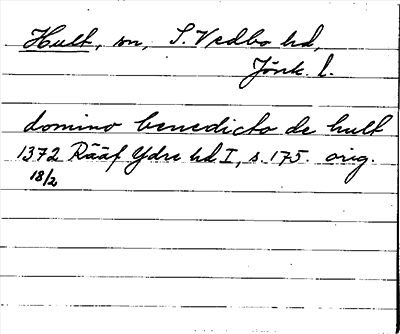 Hult, sn, S. Vedbo hd,
Jönk. l.
domino benedicto de hult
1372 Rääf Ydre hd I, s. 175. orig.
18/2